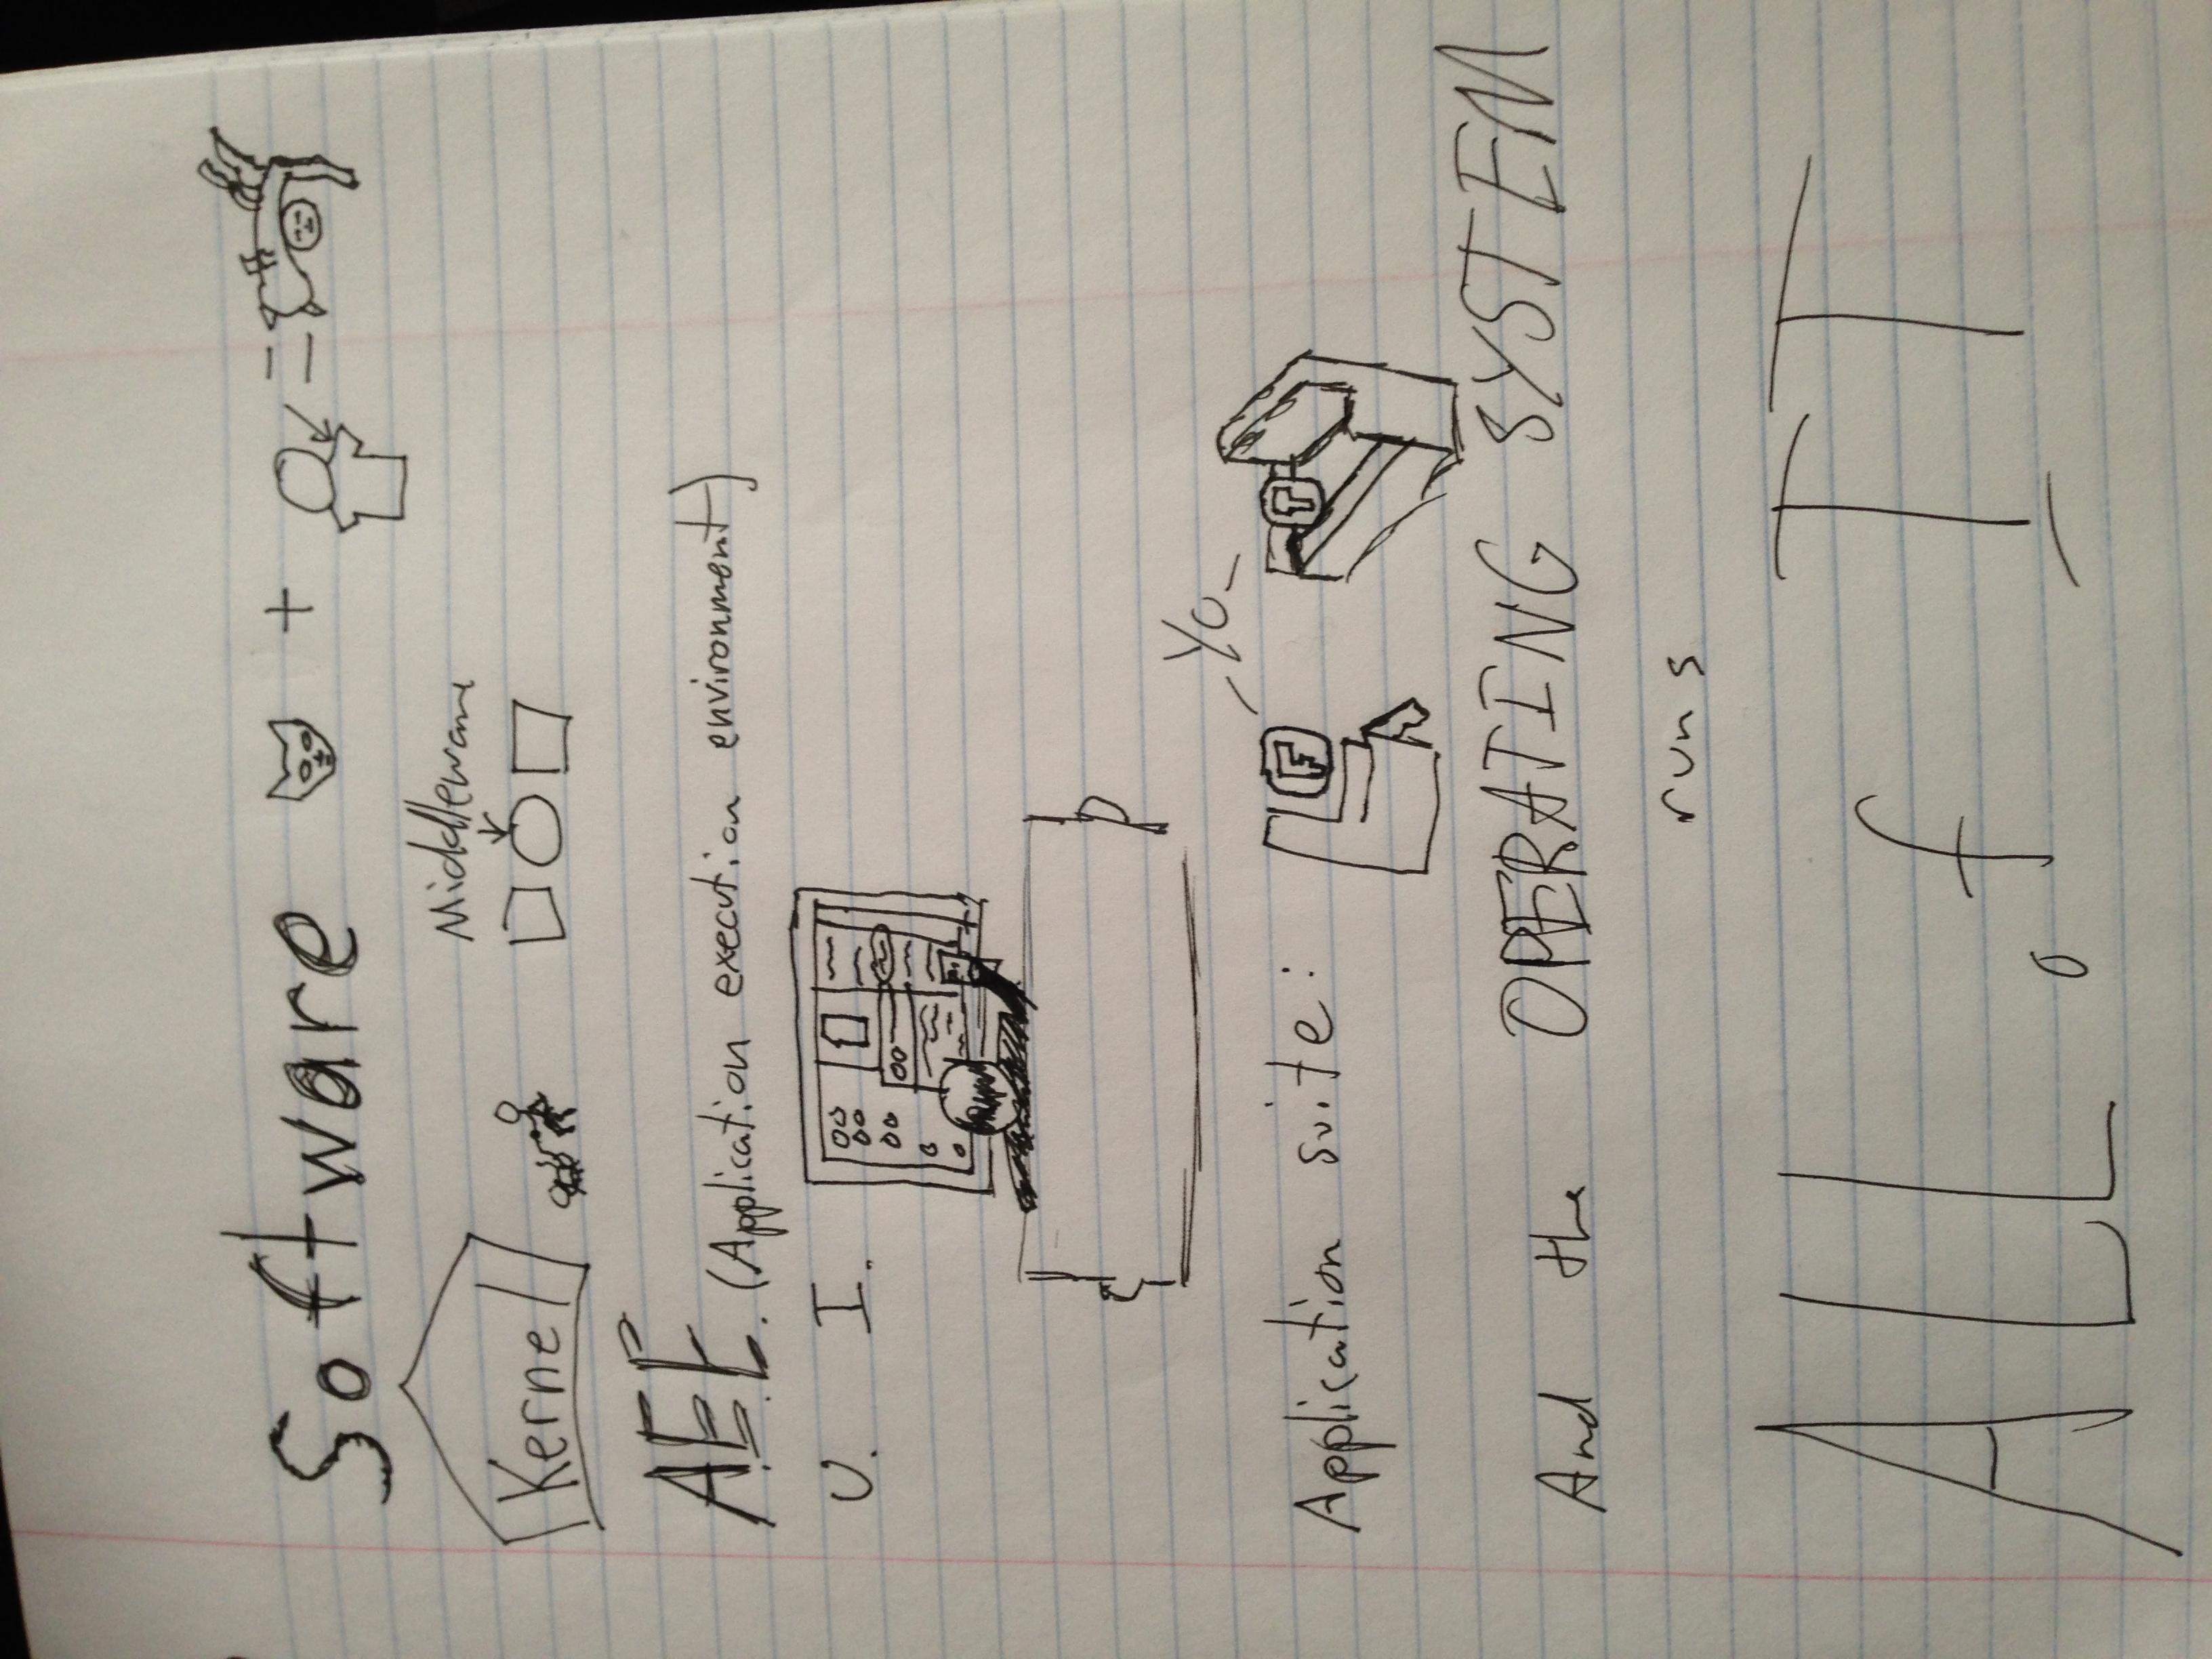 Software
Middleware
Kernel
A.E.E. (Application execution environment)
U. I.
Yo
Application suite:
F
T
And the OPERATING SYSTEM
runs
ALL of IT